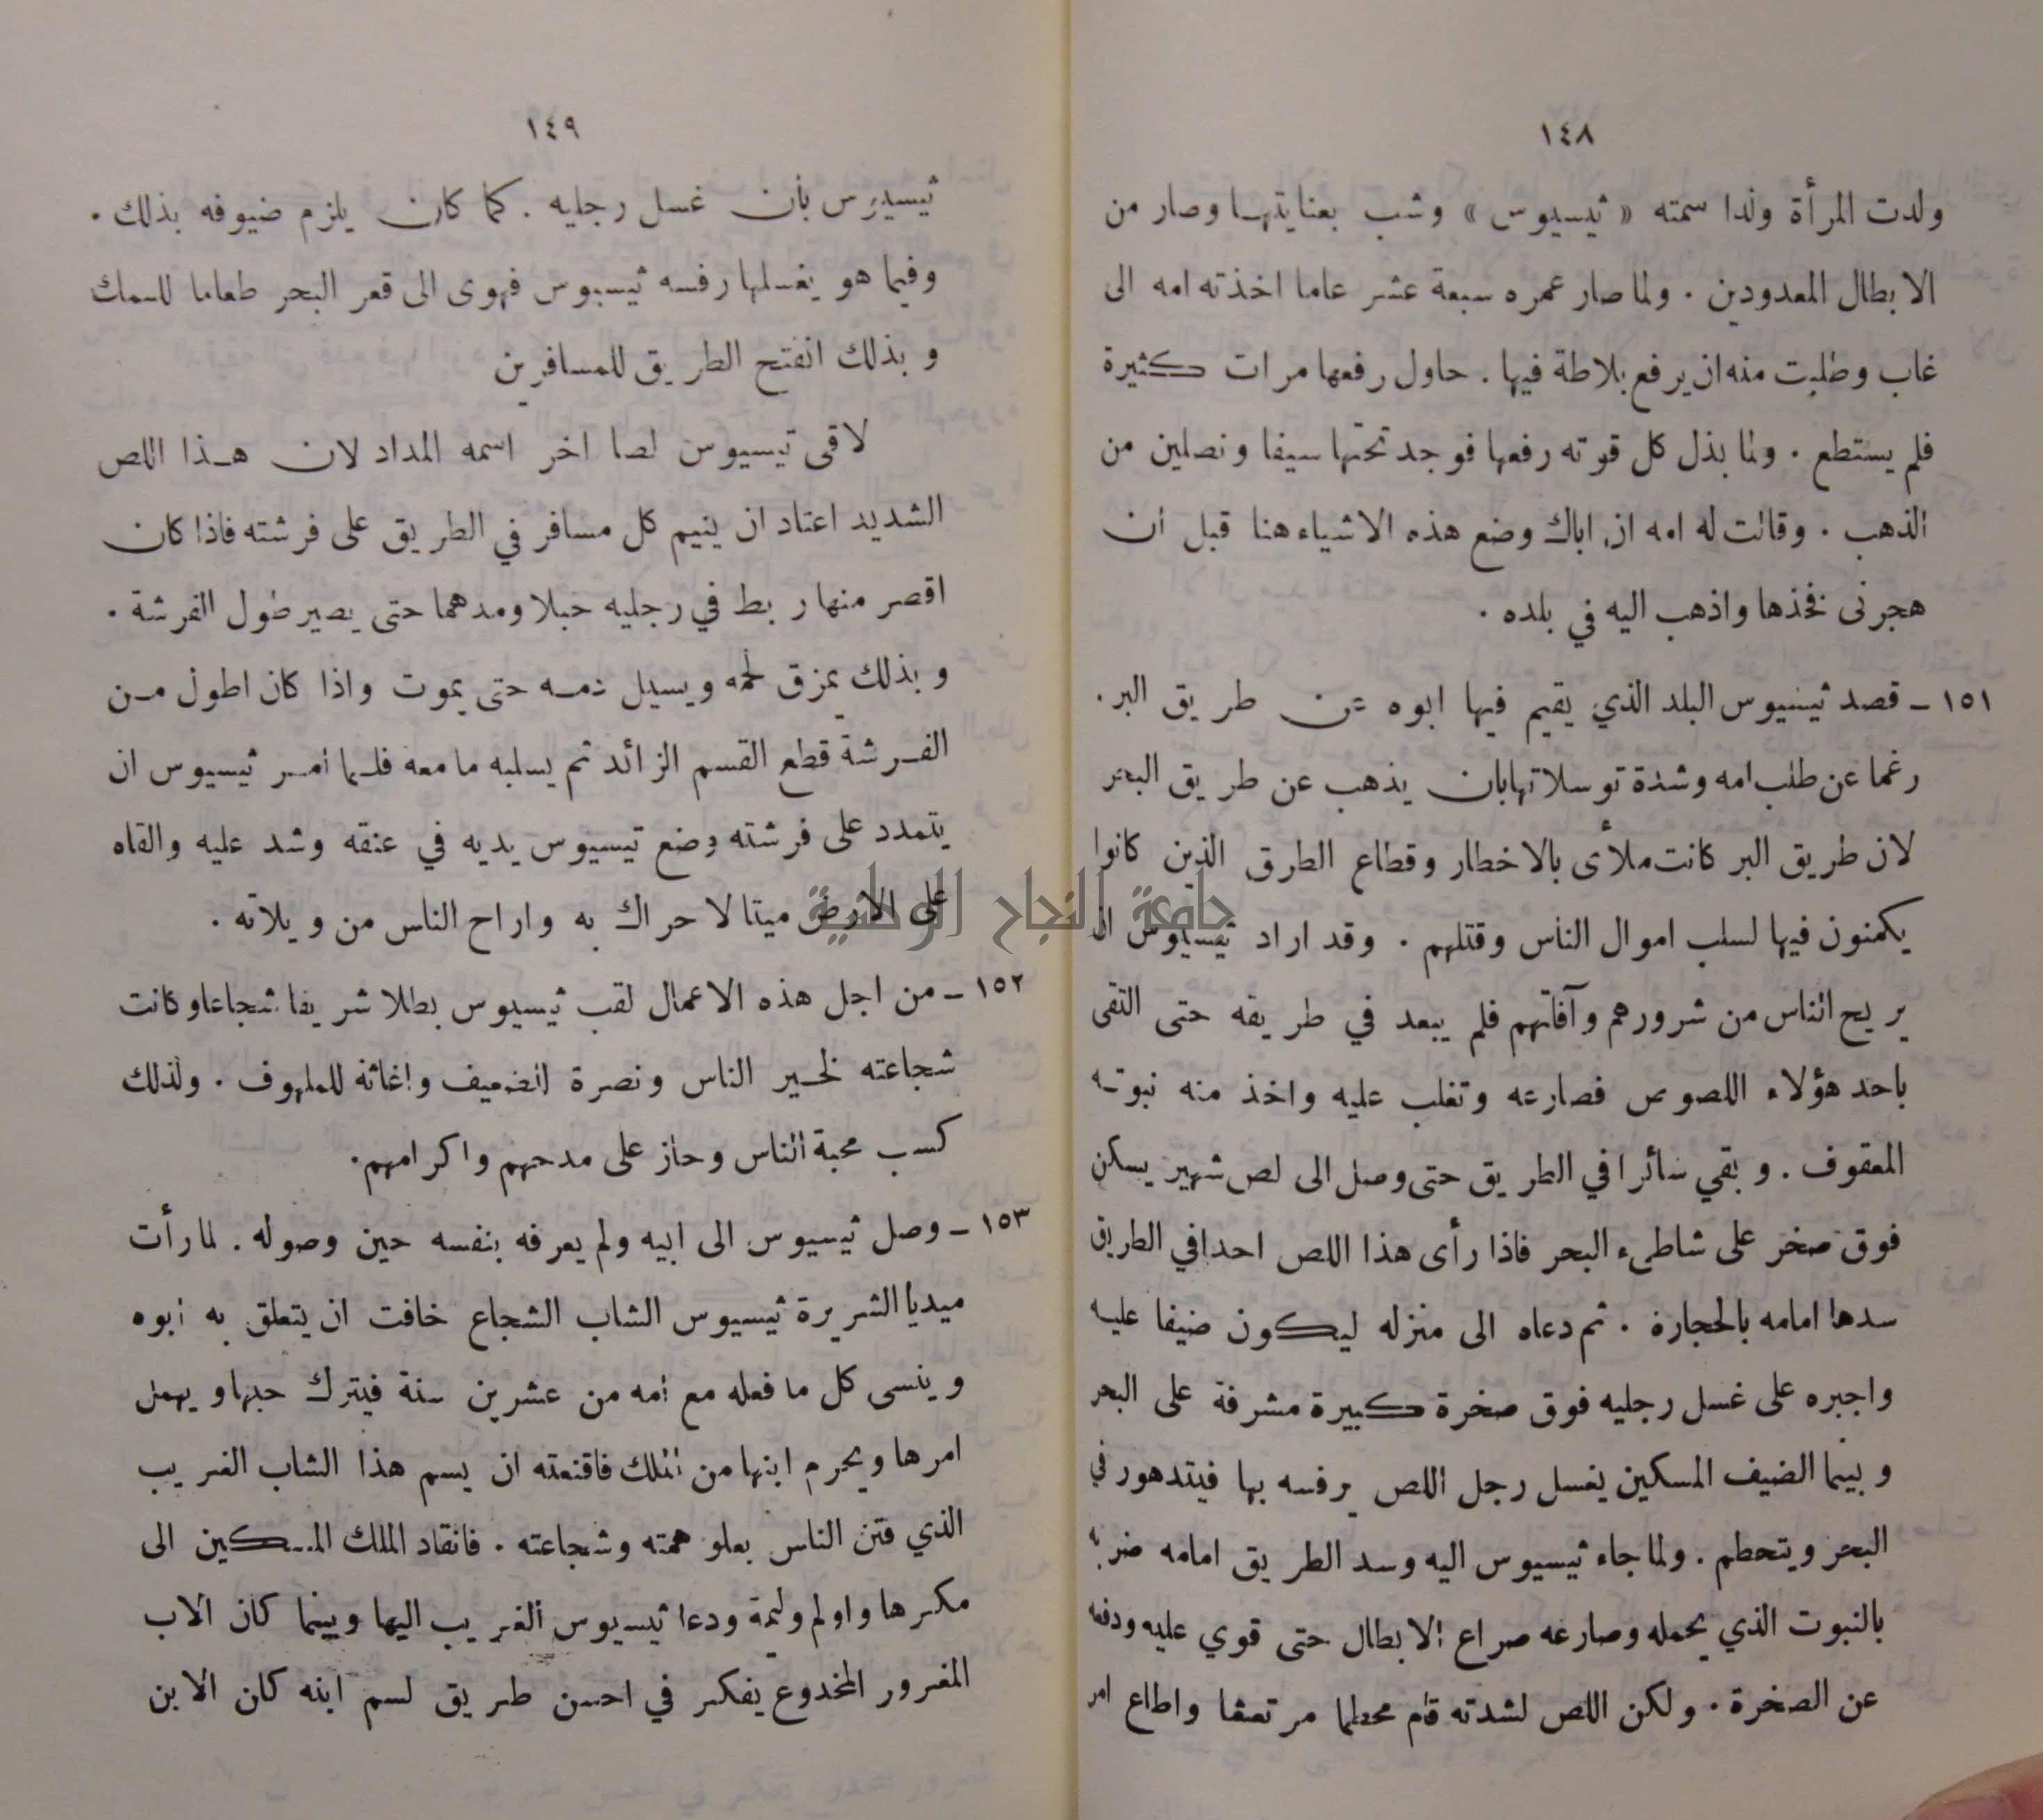 ١٤٨
ولدت المرأة ولدا سمته « ثيسيوس » وشب بعنايتها وصار من
الابطال المعدودين . ولما صار عمره سبعة عشر عاما اخذته امه الى
غاب وطلبت منه ان يرفع بلاطة فيها . حاول رفعها مرات كثيرة
فلم يستطع . ولما بذل كل قوته رفعها فوجد تحتها سيفا ونصلين من
الذهب . وقالت له امه ان اباك وضع هذه الاشياء هنا قبل ان
هجرني فخذها واذهب اليه في بلده .
١٥١ – قصد ثيسيوس البلد الذي يقيم فيها ابوه عن طريق البر .
رغما عن طلب امه وشدة توسلاتها بان يذهب عن طريق البحر
لان طريق البر كانت ملأى بالاخطار وقطاع الطرق الذين كانوا
يكمنون فيها لسلب اموال الناس وقتلهم . وقد اراد ثيسيوس ان
يريح الناس من شرورهم وآفاتهم فلم يبعد في طريقه حتى التقى
باحد هؤلاء اللصوص فصارعه وتغلب عليه واخذ منه نبوته
المعقوف . وبقي سائرا في الطريق حتى وصل الى لص شهير يسكن
فوق صخر على شاطىء البحر فاذا رأى هذا اللص احدا في الطريق
سدها امامه بالحجارة . ثم دعاه الى منزله ليكون ضيفا عليه
واجبره على غسل رجليه فوق صخرة كبيرة مشرفة على البحر
وبينما الضيف المسكين يغسل رجل اللص يرفسه بها فيتدهور في
البحر ويتحطم . ولما جاء ثيسيوس اليه وسد الطريق امامه ضربه
بالنبوت الذي يحمله وصارعه صراع الابطال حتى قوي عليه ودفعه
عن الصخرة . ولكن اللص لشدته قام محطما مرتعشا واطاع امر
١٤٩
ثيسيوس بأن غسل رجليه . كما كان يلزم ضيوفه بذلك .
وفيما هو يغسلها رفسه ثيسيوس فهوى الى قعر البحر طعاما للسمك
وبذلك انفتح الطريق للمسافرين
لاقى تيسيوس لصا اخر اسمه المداد لان هذا اللص
الشديد اعتاد ان ينيم كل مسافر في الطريق على فرشته فاذا كان
اقصر منها ربط في رجليه حبلا ومدهما حتى يصير طول الفرشة .
وبذلك يمزق لحمه ويسيل دمه حتى يموت واذا كان اطول من
الفرشة قطع القسم الزائد ثم يسلبه ما معه فلما امر ثيسيوس ان
يتمدد على فرشته وضع تيسيوس يديه في عنقه وشد عليه والقاه
على الارض ميتا لا حراك به واراح الناس من ويلاته .
جامعة النجاح الوطنية
١٥٢ – من اجل هذه الاعمال لقب ثيسيوس بطلا شريفا شجاعا وكانت
شجاعته لخير الناس ونصرة الضعيف واغاثة للملهوف . ولذلك
كسب محبة الناس وحاز على مدحهم واكرامهم .
١٥٣ – وصل ثيسيوس الى ابيه ولم يعرفه بنفسه حين وصوله . لما رأت
ميديا الشريرة ثيسيوس الشاب الشجاع خافت ان يتعلق به ابوه
وينسى كل ما فعله مع امه من عشرين سنة فيترك حبها ويهمل
امرها ويحرم ابنها من الملك فاقنعته ان يسم هذا الشاب الغريب
الذي فتن الناس بعلو همته وشجاعته . فانقاد الملك المسكين الى
مكرها واولم وليمة ودعا ثيسيوس الغريب اليها وبينما كان الاب
المغرور المخدوع يفكر في احسن طريق لسم ابنه كان الابن